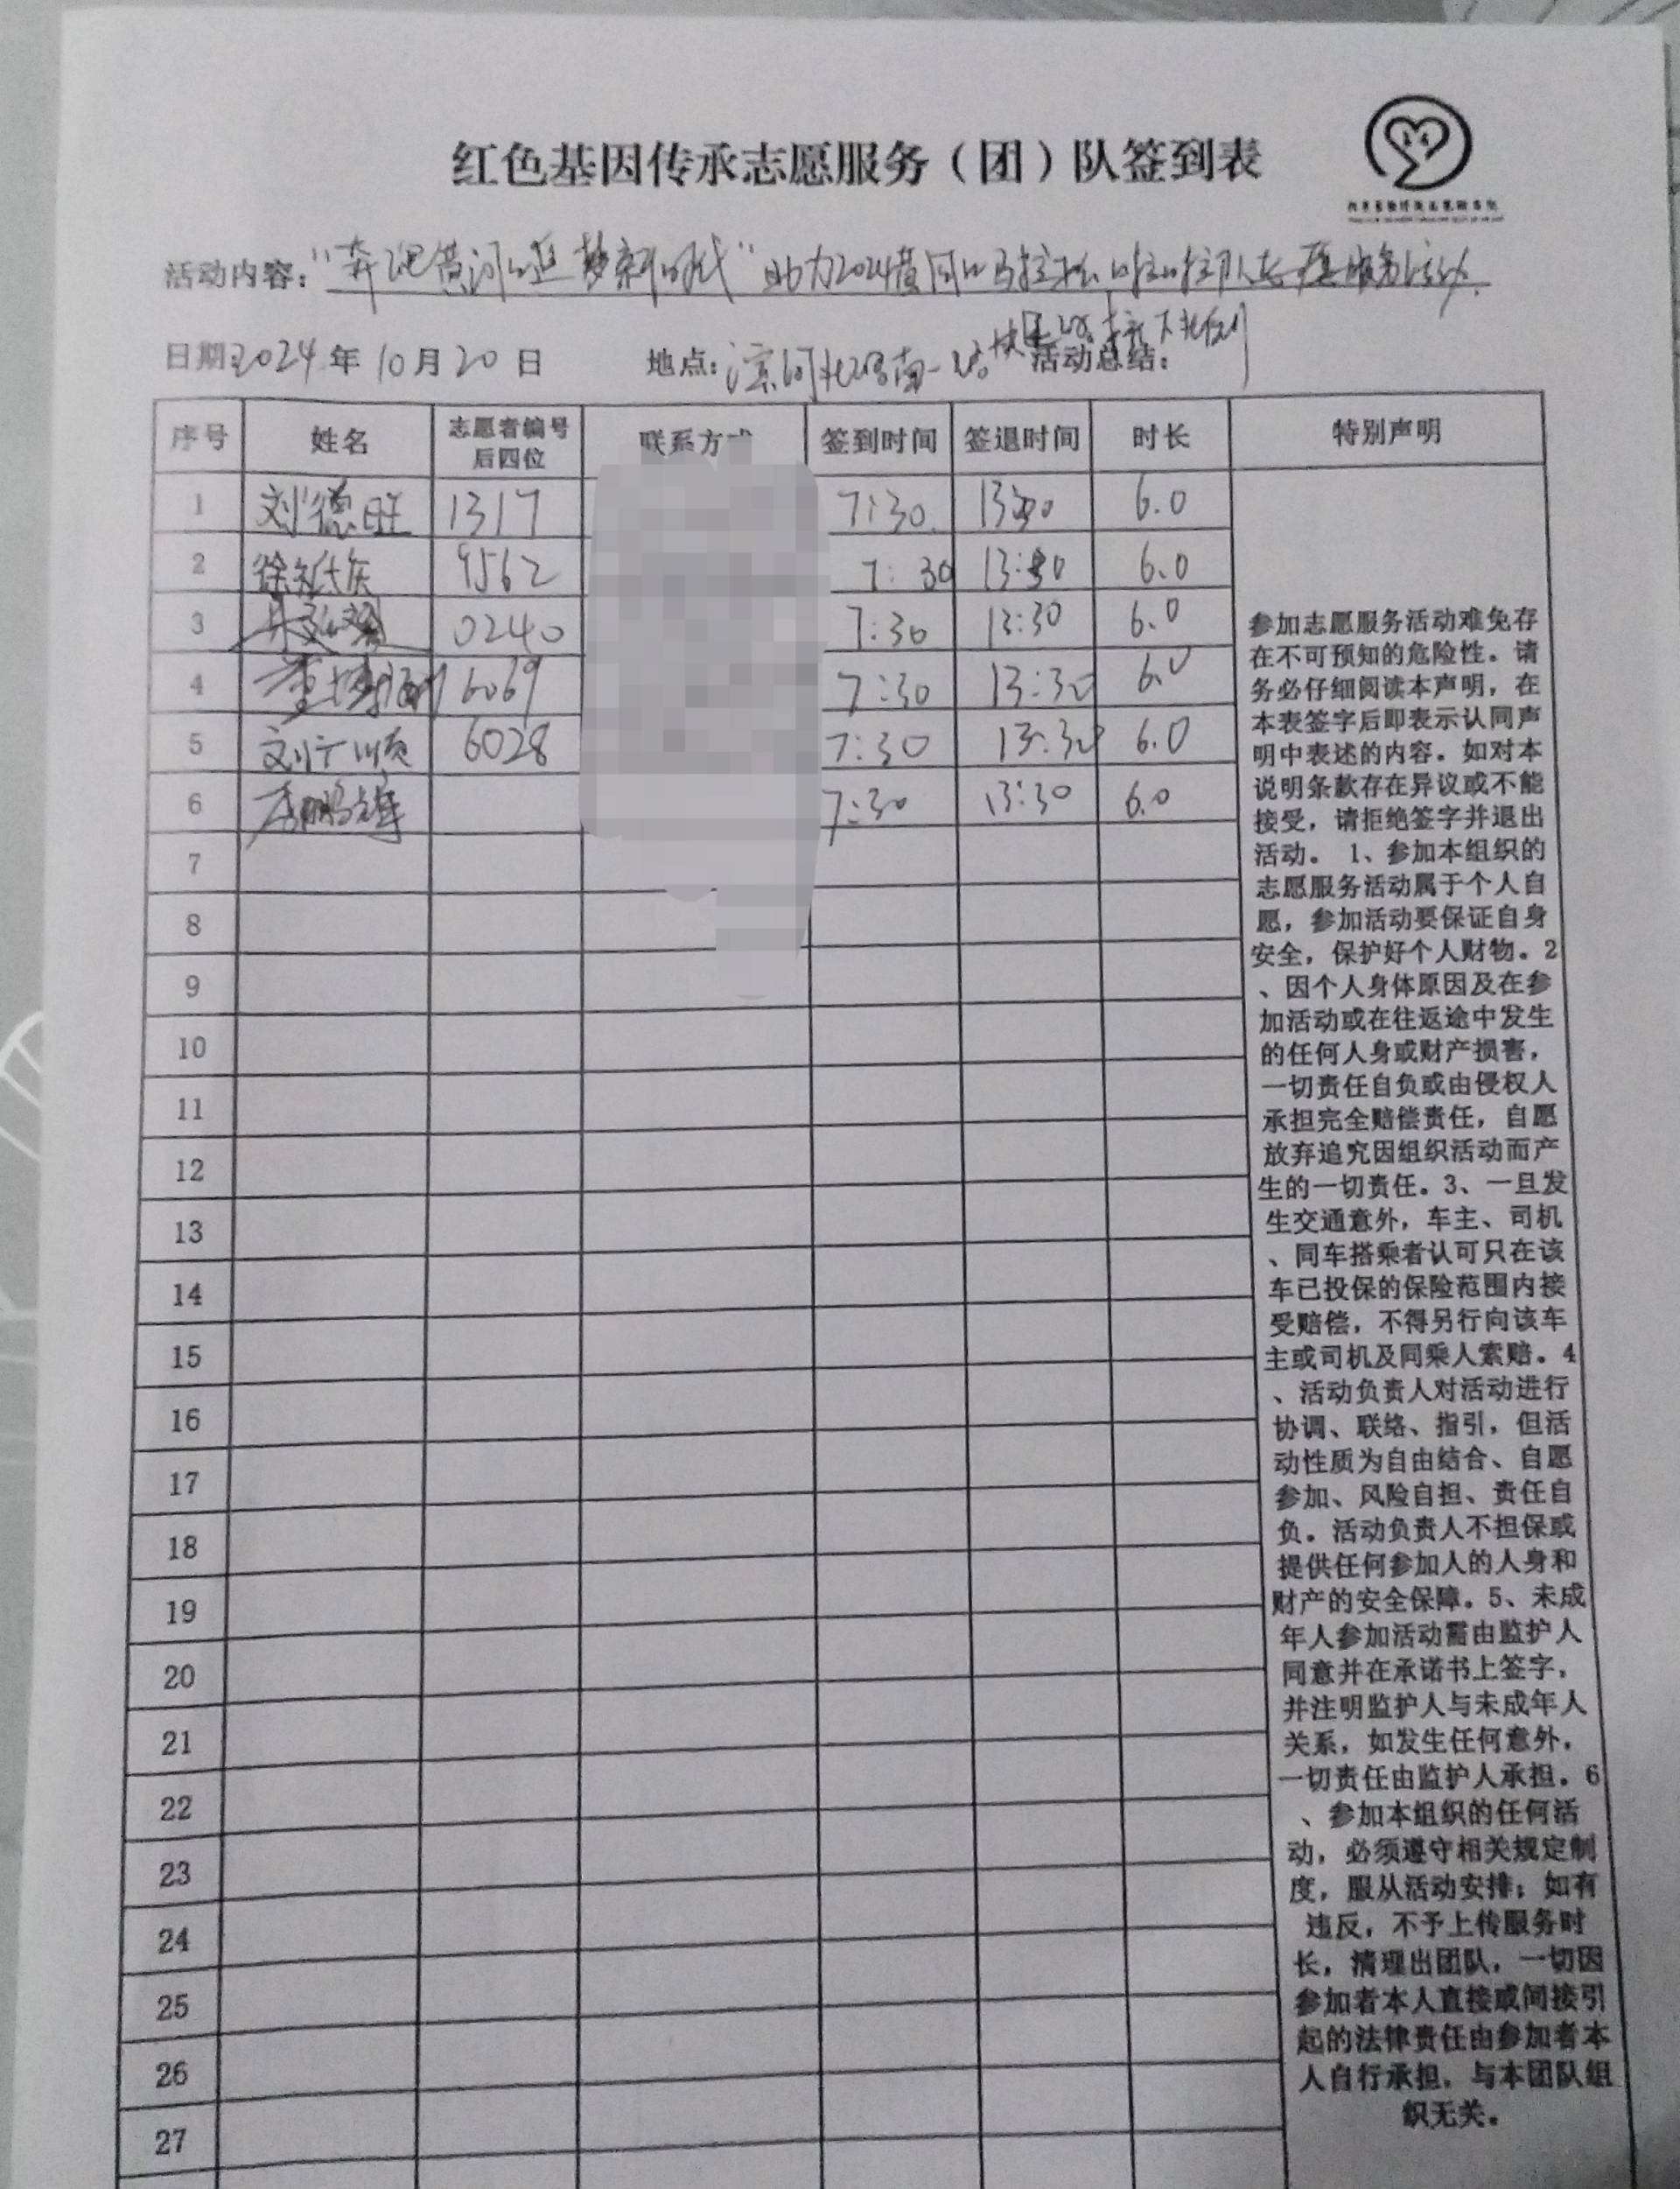 红色基因传承志愿服务（团）队签到表
活动内容：“奔跑黄河口逐梦新时代”助力2024黄河口马拉松啦啦队志愿服务活动
日期2024年10月20日 地点：滨河北路南一路 活动总结：
序号 姓名 志愿者编号后四位 联系方式 签到时间 签退时间 时长 特别声明
1 刘德旺 1317 7:30 13:30 6.0
2 9562 7:30 13:30 6.0
3 0240 7:30 13:30 6.0
4 6069 7:30 13:30 6.0
5 刘广顺 6028 7:30 13:30 6.0
6 李鹏辉 7:30 13:30 6.0
7
8
9
10
11
12
13
14
15
16
17
18
19
20
21
22
23
24
25
26
27
参加志愿服务活动难免存
在不可预知的危险性。请
务必仔细阅读本声明，在
本表签字后即表示认同声
明中表述的内容。如对本
说明条款存在异议或不能
接受，请拒绝签字并退出
活动。1、参加本组织的
志愿服务活动属于个人自
愿，参加活动要保证自身
安全，保护好个人财物。2
、因个人身体原因及在参
加活动或在往返途中发生
的任何人身或财产损害，
一切责任自负或由侵权人
承担完全赔偿责任，自愿
放弃追究因组织活动而产
生的一切责任。3、一旦发
生交通意外，车主、司机
、同车搭乘者认可只在该
车已投保的保险范围内接
受赔偿，不得另行向该车
主或司机及同乘人索赔。4
、活动负责人对活动进行
协调、联络、指引，但活
动性质为自由结合、自愿
参加、风险自担、责任自
负。活动负责人不担保或
提供任何参加人的人身和
财产的安全保障。5、未成
年人参加活动需由监护人
同意并在承诺书上签字，
并注明监护人与未成年人
关系，如发生任何意外，
一切责任由监护人承担。6
、参加本组织的任何活
动，必须遵守相关规定制
度，服从活动安排；如有
违反，不予上传服务时
长，清理出团队，一切因
参加者本人直接或间接引
起的法律责任由参加者本
人自行承担，与本团队组
织无关。